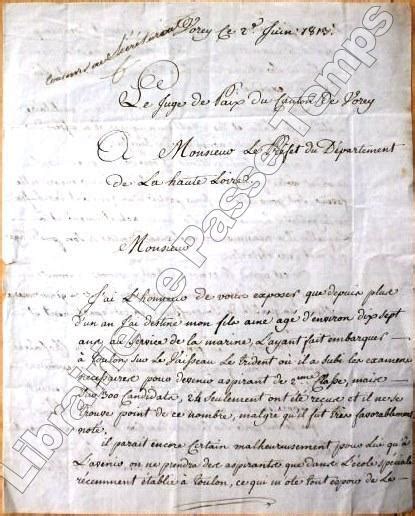 Vorey Le 2e Juin 1813.
Le Juge de Paix du Canton De Vorey
A Monsieur Le Préfet du Département
de La haute Loire
Monsieur
J'ai L'honneur de vous exposer que depuis plus
d'un an J'ai destiné mon fils ainé agé d'environ dix sept
ans au Service de la marine, L'ayant fait embarquer
à Toulon Sur Le Vaisseau Le trident où il a subi les examens
nécessaires pour devenir aspirant de 2eme Classe, mais
300 Candidats, 24 seulement ont été recus et il ne se
trouve point de ce nombre, malgré qu'il fut très favorablement
noté.
il parait encore Certain malheureusement pour lui qu'à
L'avenir on ne prendra des aspirants que dans L'école spéciale
recemment établie à Toulon, ce qui m'ote tout espoir de Le
Librairie Le Passe-Temps